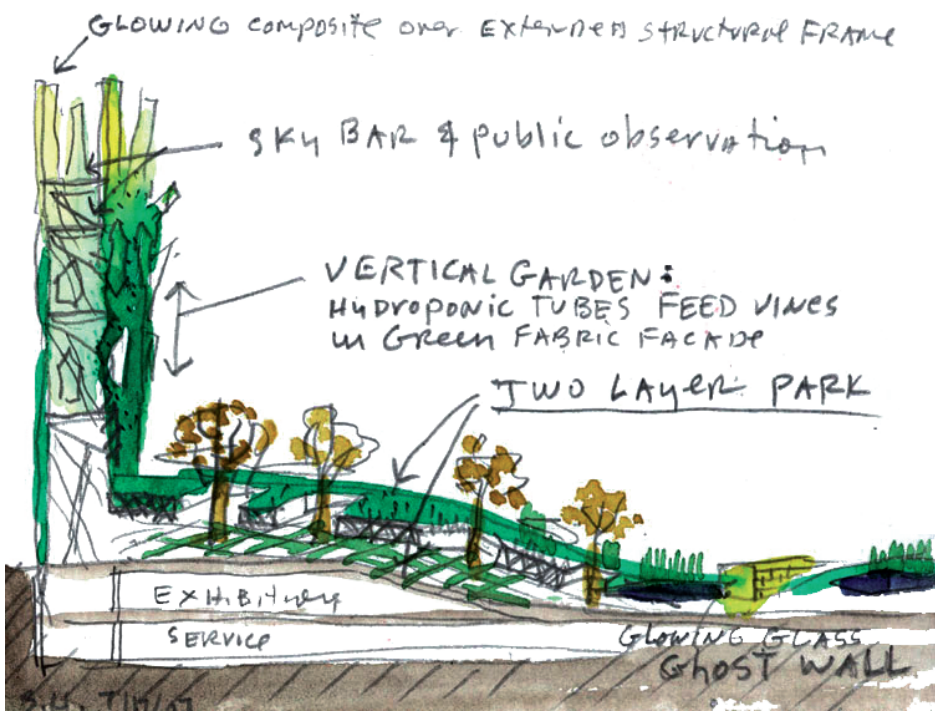 GLOWING composite over EXTENDED structural FRAME
SKY BAR & public observation
VERTICAL GARDEN:
HyDROPONIC TUBES FEED VINES
in Green FABRIC FACADE
TWO LAYER PARK
EXHIBITIONS
SERVICE
GLOWING GLASS
GHOST WALL